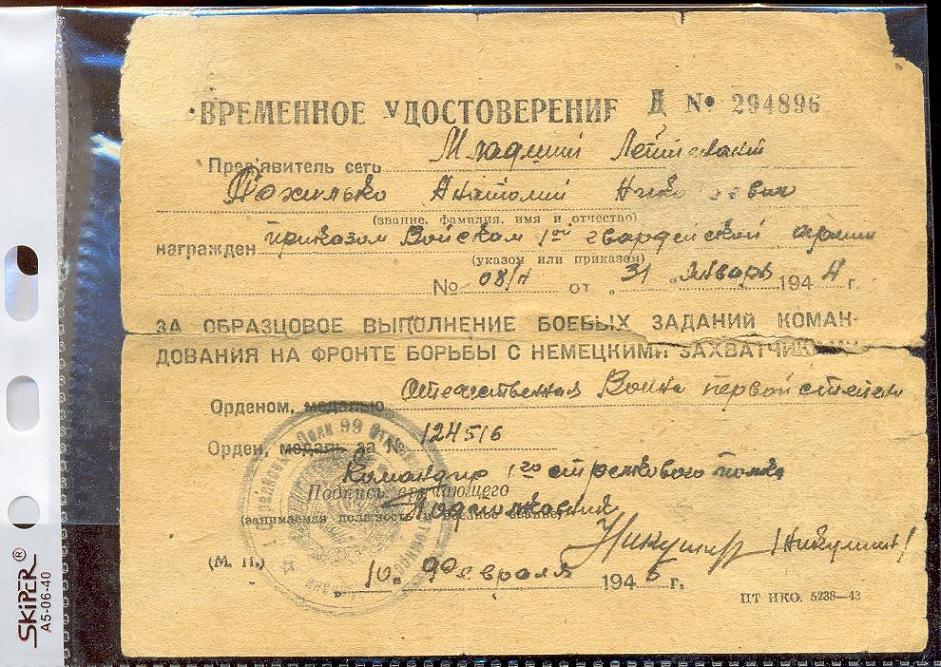 ВРЕМЕННОЕ УДОСТОВЕРЕНИЕ Д № 294896
Пред'явитель сего Младший Лейтенант
Анатолий
(звание, фамилия, имя и отчество)
награжден приказом Войскам 1ой гвардейской армии
(указом или приказом)
№ 08/н от „31„ Января 1944 г.
ЗА ОБРАЗЦОВОЕ ВЫПОЛНЕНИЕ БОЕВЫХ ЗАДАНИЙ КОМАН-
ДОВАНИЯ НА ФРОНТЕ БОРЬБЫ С НЕМЕЦКИМИ ЗАХВАТЧИКАМИ
Орденом, медалью Отечественная Война первой степени
Орден, медаль за № 124516
Командир 1го стрелкового полка
Подпись вручающего
Подполковник
(занимаемая должность и военное звание)
(Никулин)
(М. П.)
„10„ Февраля 194 г.
ЦТ НКО. 5238—43
SKiPER®
A5-06-40